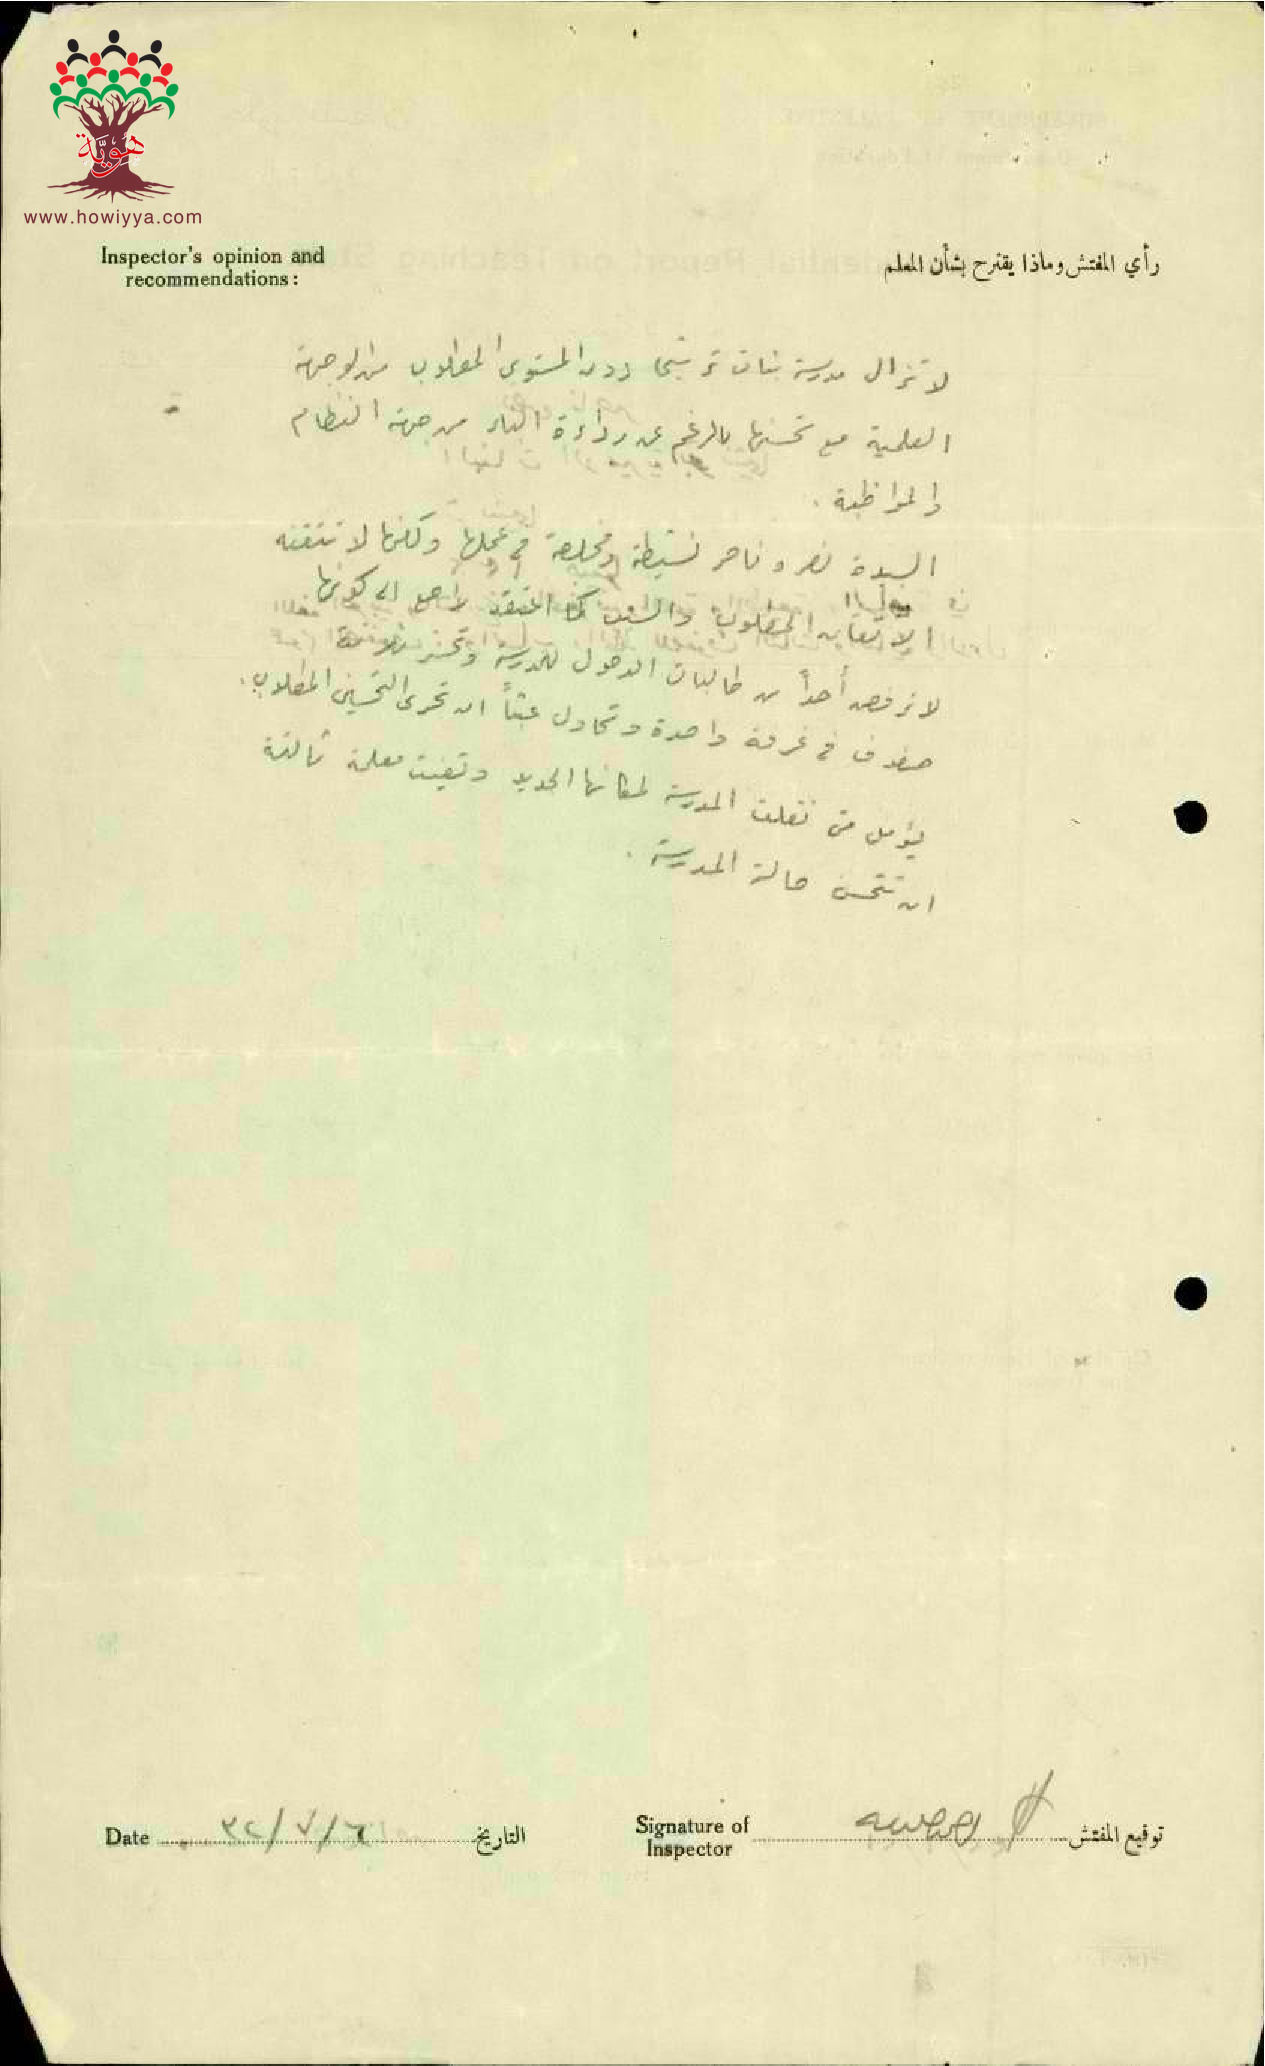 هويّة
www.howiyya.com
Inspector's opinion and
recommendations:
رأي المفتش وماذا يقترح بشأن المعلم
لا تزال مدرسة بنات دون المستوى المطلوب من الوجهة
العلمية مع تحسنها بالرغم عن رداءة البناء من جهة النظام
والمواظبة .
السيدة ناصر نشيطة ومخلصة في عملها ولكنها لا تتقنه
الاتقان المطلوب والسبب كما اعتقد لأصل الى كونها
لا ترفض أحداً من طالبات الدخول للمدرسة وتحشر ثلاثة
صفوف في غرفة واحدة وتحاول عبثاً ان تجري التحسين المطلوب .
يؤمل متى نقلت المدرسة لمكانها الجديد وتعينت معلمة ثالثة
ان تتحسن حالة المدرسة .
Date ٣٢/٧/٦ التاريخ
Signature of
Inspector
توقيع المفتش